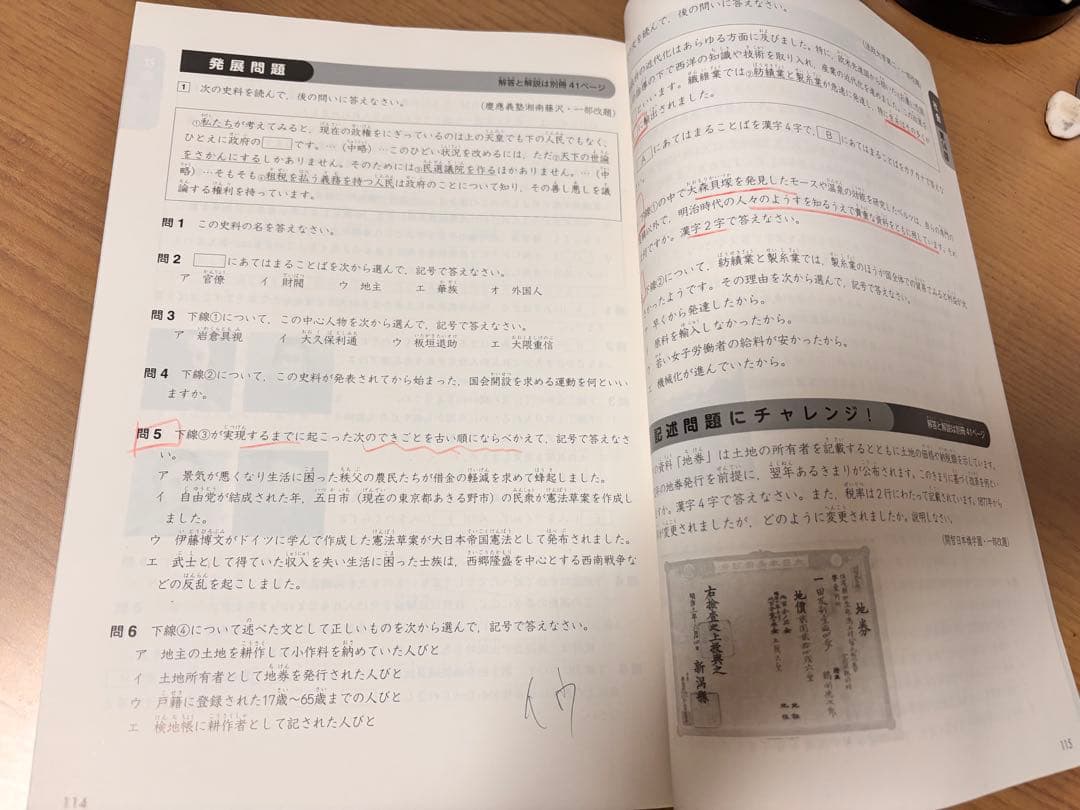 発展問題
解答と解説は別冊41ページ
1 次の史料を読んで、後の問いに答えなさい。
(慶應義塾湘南藤沢・一部改題)
①私たちが考えてみると、現在の政権をにぎっているのは上の天皇でも下の人民でもなく、
ひとえに政府の□です。…(中略)…このひどい状況を改めるには、ただ②天下の世論
をさかんにするしかありません。そのためには③民選議院を作るほかはありません。…(中
略)…そもそも④租税を払う義務を持つ人民は政府のことについて知り、その善し悪しを議
論する権利を持っています。
問1 この史料の名を答えなさい。
問2 □にあてはまることばを次から選んで、記号で答えなさい。
ア 官僚 イ 財閥 ウ 地主 エ 華族 オ 外国人
問3 下線①について、この中心人物を次から選んで、記号で答えなさい。
ア 岩倉具視 イ 大久保利通 ウ 板垣退助 エ 大隈重信
問4 下線②について、この史料が発表されてから始まった、国会開設を求める運動を何といい
ますか。
問5 下線③が実現するまでに起こった次のできごとを古い順にならべかえて、記号で答えなさ
い。
ア 景気が悪くなり生活に困った秩父の農民たちが借金の軽減を求めて蜂起しました。
イ 自由党が結成された年、五日市(現在の東京都あきる野市)の民衆が憲法草案を作成し
ました。
ウ 伊藤博文がドイツに学んで作成した憲法草案が大日本帝国憲法として発布されました。
エ 武士として得ていた収入を失い生活に困った士族は、西郷隆盛を中心とする西南戦争な
どの反乱を起こしました。
問6 下線④について述べた文として正しいものを次から選んで、記号で答えなさい。
ア 地主の土地を耕作して小作料を納めていた人びと
イ 土地所有者として地券を発行された人びと
ウ 戸籍に登録された17歳〜65歳までの人びと
エ 検地帳に耕作者として記された人びと
114
を読んで、後の問いに答えなさい。
の近代化はあらゆる方面に及びました。特に、欧米先進国から
の下で西洋の知識や技術を取り入れ、産業の近代化を進めました
といいます。繊維業では②紡績業と製糸業が急速に発達し、特に生糸は
に輸出されました。
A にあてはまることばを漢字4字で、B にあてはまることばをカタカナで答えな
下線①の中で大森貝塚を発見したモースや温泉の効能を研究したベルツは、自らの専門の
以外で、明治時代の人々のようすを知るうえで貴重な資料をともに残しています。それ
何ですか。漢字2字で答えなさい。
下線②について、紡績業と製糸業では、製糸業のほうが国全体での貿易でみると利益が
かったようです。その理由を次から選んで、記号で答えなさい。
早くから発達したから。
原料を輸入しなかったから。
若い女子労働者の給料が安かったから。
エ 機械化が進んでいたから。
記述問題にチャレンジ!
解答と解説は別冊41ページ
の資料「地券」は土地の所有者を記載するとともに土地の価格や納税額を示しています。
の地券発行を前提に、翌年あるきまりが公布されます。このきまりに基づく改革を何とい
すか。漢字4字で答えなさい。また、税率は2行にわたって記載されています。1877年から
変更されましたが、どのように変更されましたか。説明しなさい。
(開智日本橋学園・一部改題)
地券
地價
右検査之上授與之
新潟縣
115